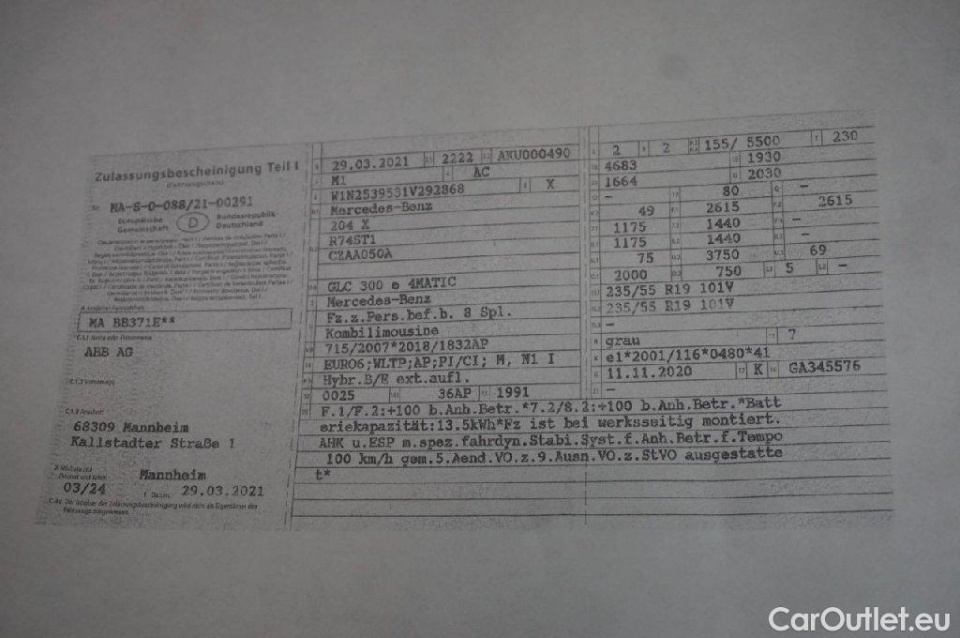 Zulassungsbescheinigung Teil I
(Fahrzeugschein)
Nr. MA-S-0-088/21-00291
Europäische Gemeinschaft D Bundesrepublik Deutschland
A Amtliches Kennzeichen
MA BB371E**
C.1.1 Name oder Firmenname
ABB AG
C.1.2 Vorname(n)
C.1.3 Anschrift
68309 Mannheim
Kallstadter Straße 1
Mannheim
03/24
29.03.2021
29.03.2021 2222 ANU000490
M1 AC
W1N2539531V292868 X
Mercedes-Benz
204 X
R74ST1
CZAA050A
GLC 300 e 4MATIC
Mercedes-Benz
Fz.z.Pers.bef.b. 8 Spl.
Kombilimousine
715/2007*2018/1832AP
EURO6;WLTP;AP;PI/CI; M, N1 I
Hybr.B/E ext.aufl.
0025 36AP 1991
2 2 155/ 5500 230
4683 1930
1664 2030
- 80 -
49 2615 2615
1175 1440 -
1175 1440 -
75 3750 69
2000 750 5 -
235/55 R19 101V
235/55 R19 101V
-
grau 7
e1*2001/116*0480*41
11.11.2020 K GA345576
-
F.1/F.2:+100 b.Anh.Betr.*7.2/8.2:+100 b.Anh.Betr.*Batt
eriekapazität:13.5kWh*Fz ist bei werksseitig montiert.
AHK u.ESP m.spez.fahrdyn.Stabi.Syst.f.Anh.Betr.f.Tempo
100 km/h gem.5.Aend.VO.z.9.Ausn.VO.z.StVO ausgestatte
t*
CarOutlet.eu